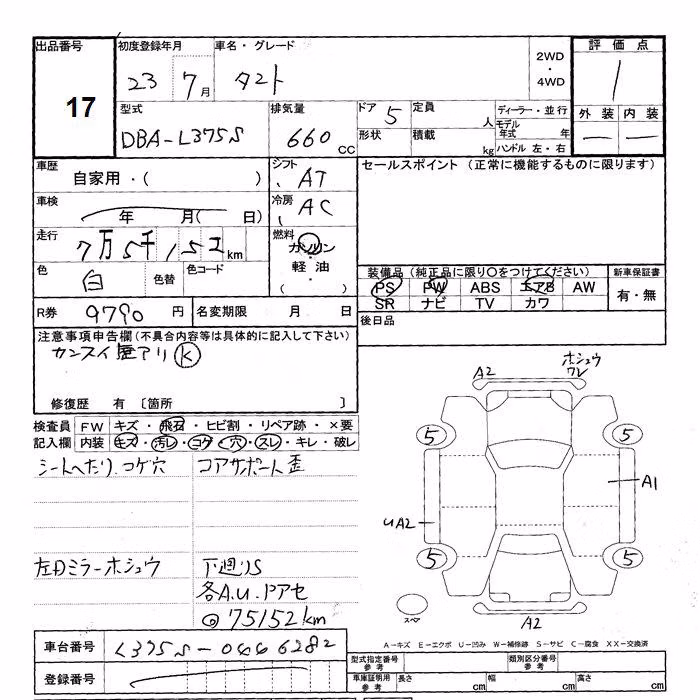 出品番号 17
初度登録年月 23 7月
車名・グレード タント
2WD・4WD
評価点 1
外装 ― 内装 ―
型式 DBA-L375S
排気量 660 CC
ドア 5
形状
定員 人
積載 kg
ディーラー・並行
モデル年式 年
ハンドル 左・右
車歴 自家用・( )
シフト AT
セールスポイント (正常に機能するものに限ります)
車検 年 月( 日)
冷房 AC
走行 7万5千152km
燃料 ガソリン・軽油・( )
色 白 色替 色コード
装備品 (純正品に限り〇をつけてください)
新車保証書
PS PW ABS エアB AW
有・無
SR ナビ TV カワ
R券 9790 円
名変期限 月 日
後日品
注意事項申告欄(不具合内容等は具体的に記入して下さい)
カンスイ歴アリ K
修復歴 有 〔箇所 〕
検査員記入欄
FW キズ・飛石・ヒビ割・リペア跡・×要
内装 キズ・汚レ・コゲ・穴・スレ・キレ・破レ
シートへたり、コゲ穴
コアサポート歪
左Dミラーホシュウ
下廻りS
各A.U.ドアセ
◎75152km
A2
ホシュウ
ワレ
5
5
A1
UA2
5
5
スペア
A2
A-キズ E-エクボ U-凹み W-補修跡 S-サビ C-腐食 XX-交換済
車台番号 L375S-0446282
登録番号
型式指定番号 参考
類別区分番号 参考
車庫証明用 参考
長さ cm 幅 cm 高さ cm